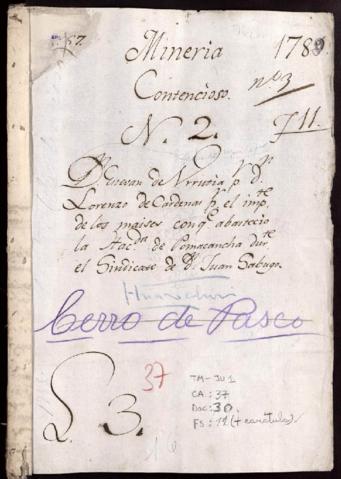 57.
Mineria 1789
Contencioso. nº 3
N. 2. 711.
Dn. Estevan de Urrutia pr. pn. d.
Lorenzo de Cardenas pr. el impte.
de los maises con q.e abastecio
la Hacda. de Pomacancha durte
el Sindicato de Dn. Juan Sabugo.
Huarochiri
Cerro de Pasco
37
TM-JU 1
CA: 37
Doc: 30.
FS: 11 (+ caratula)
L. 3.